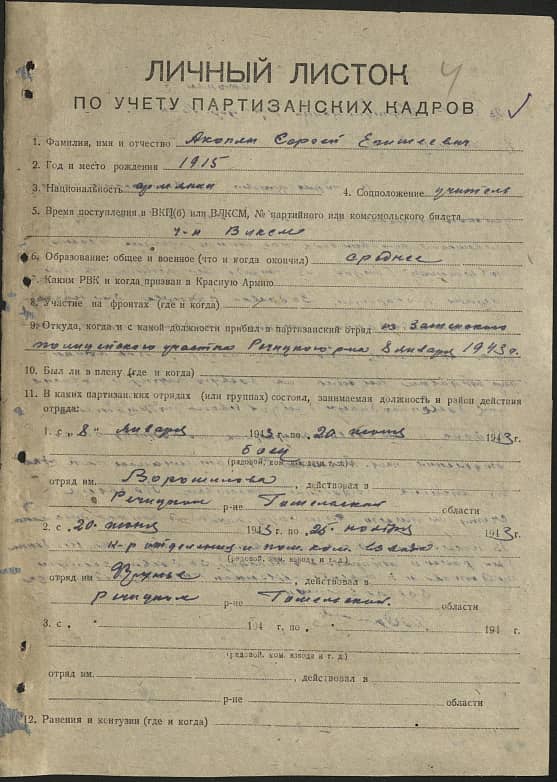 4
ЛИЧНЫЙ ЛИСТОК
ПО УЧЕТУ ПАРТИЗАНСКИХ КАДРОВ
1. Фамилия, имя и отчество Акопян Сергей Егишеевич
2. Год и место рождения 1915
3. Национальность армянин 4. Соцположение учитель
5. Время поступления в ВКП(б) или ВЛКСМ, № партийного или комсомольского билета
ч-н ВЛКСМ
6. Образование: общее и военное (что и когда окончил) среднее
7. Каким РВК и когда призван в Красную Армию
8. Участие на фронтах (где и когда)
9. Откуда, когда и с какой должности прибыл в партизанский отряд из
полицейского участка Речицкого р-на 8 января 1943 г.
10. Был ли в плену (где и когда)
11. В каких партизанских отрядах (или группах) состоял, занимаемая должность и район действия
отряда:
1. с „8" января 1943 г. по 20 июня 1943 г.
боец
(рядовой, ком. взвода и т. д.)
отряд им. Ворошилова, действовал в
Речицком р-не Гомельской области
2. с 20 июня 1943 г. по 25 ноября 1943 г.
к-р отделения и пом. ком. взвода
(рядовой, ком. взвода и т. д.)
отряд им. Фрунзе, действовал в
Речицком р-не Гомельской области
3. с „ " 194 г. по „ " 194 г.
(рядовой, ком. взвода и т. д.)
отряд им. , действовал в
р-не области
12. Ранения и контузии (где и когда)